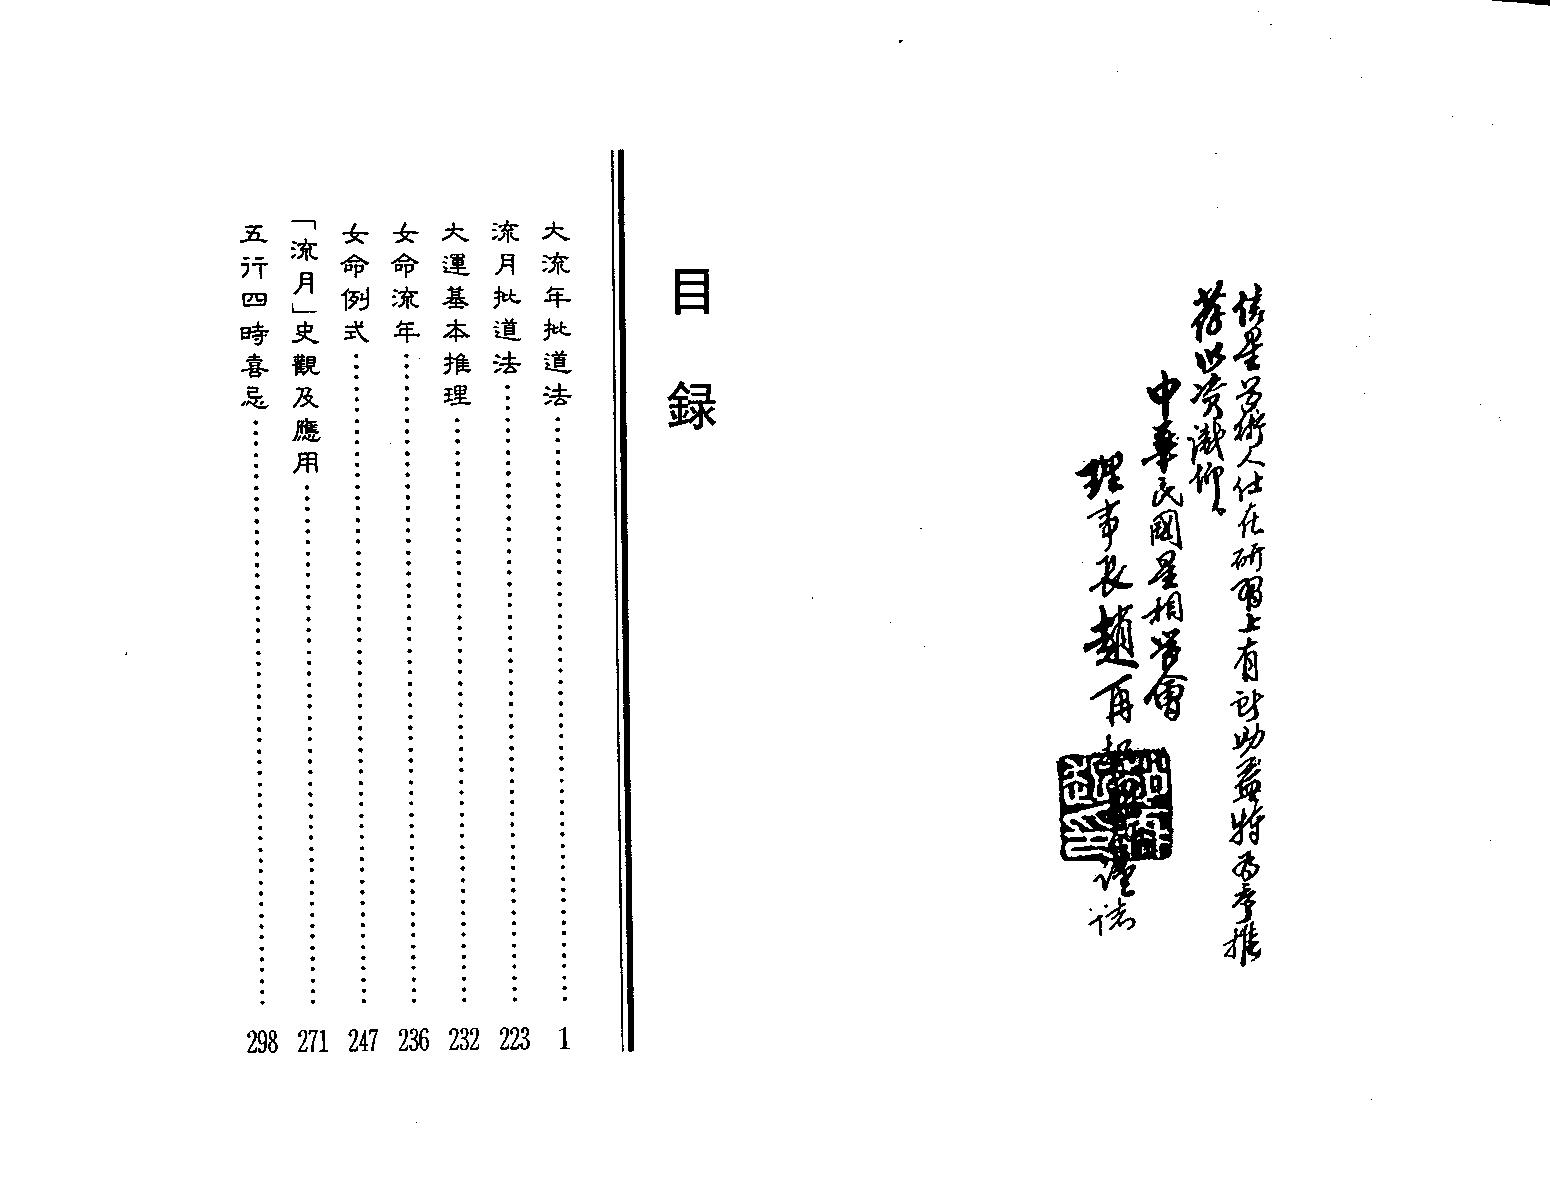 俾星學術人仕在研習上有所助益特為序推
荐以資激仰。
中華民國星相學會
理事長趙再
謹誌
目錄
大流年批道法 1
流月批道法 223
大運基本推理 232
女命流年 236
女命例式 247
「流月」史觀及應用 271
五行四時喜忌 298